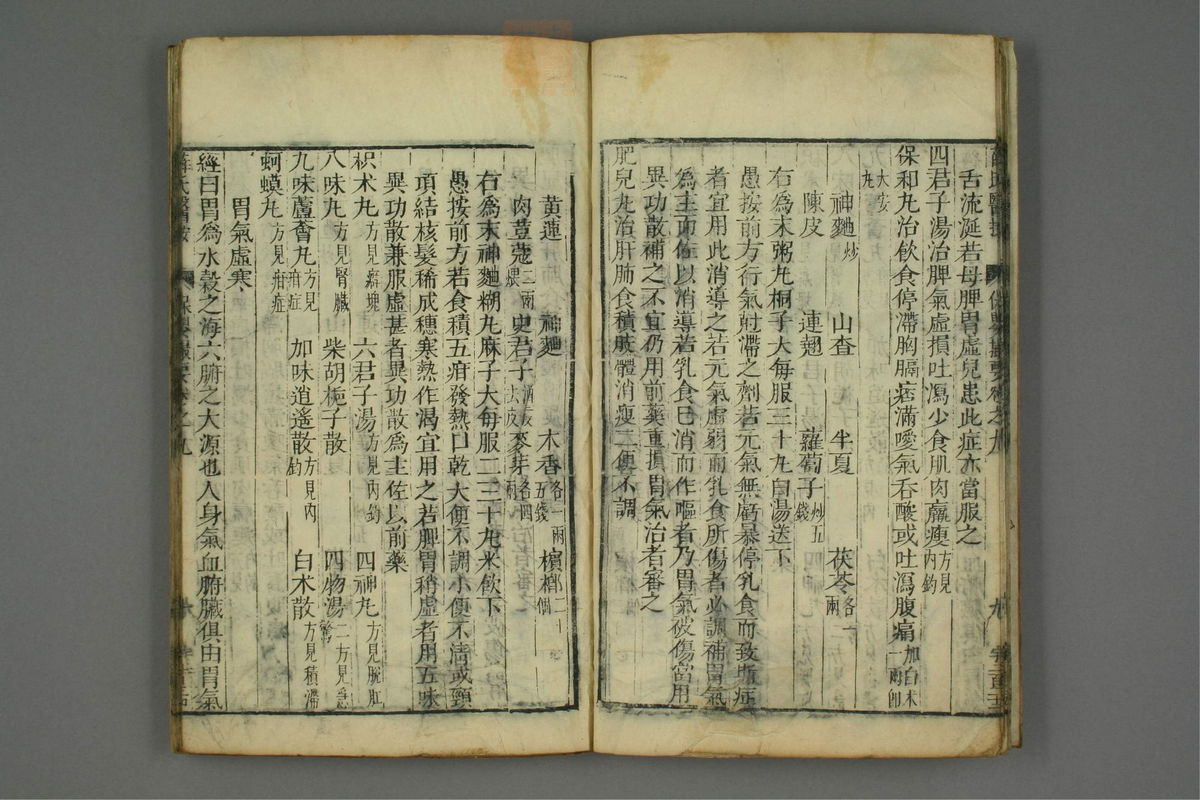 舌流涎若母脾胃虛兒患此症亦當服之
四君子湯治脾氣虛損吐瀉少食肌肉羸瘦方見內釣
保和丸治飲食停滯胸膈痞滿噯氣吞酸或吐瀉腹痛加白朮一兩卽
大安丸
神麯炒 山查 半夏 茯苓各一兩
陳皮 連翹 蘿蔔子炒五錢
右爲末粥丸桐子大每服三十丸白湯送下
愚按前方行氣尅滯之劑若元氣無虧暴停乳食而致斯症
者宜用此消導之若元氣虛弱而乳食所傷者必調補胃氣
爲主而佐以消導若乳食已消而作嘔者乃胃氣被傷當用
異功散補之不宜仍用前藥重損胃氣治者審之
肥兒丸治肝肺食積肢體消瘦二便不調
黃蓮 神麯 木香各一兩五錢 檳榔二十個
肉荳蔻二兩煨 史君子酒浸去皮 麥芽各四兩
右爲末神麯糊丸麻子大每服二三十丸米飲下
愚按前方若食積五疳發熱口乾大便不調小便不清或頸
項結核髮稀成穗寒熱作渴宜用之若脾胃稍虛者用五味
異功散兼服虛甚者異功散爲主佐以前藥
枳朮丸方見癖塊 六君子湯方見內釣 四神丸方見脫肛
八味丸方見腎臟 柴胡梔子散 四物湯二方見急驚
九味蘆薈丸方見疳症 加味逍遙散方見內釣 白朮散方見積滯
蚵蟆丸方見疳症
胃氣虛寒
經曰胃爲水穀之海六腑之大源也人身氣血腑臟俱由胃氣